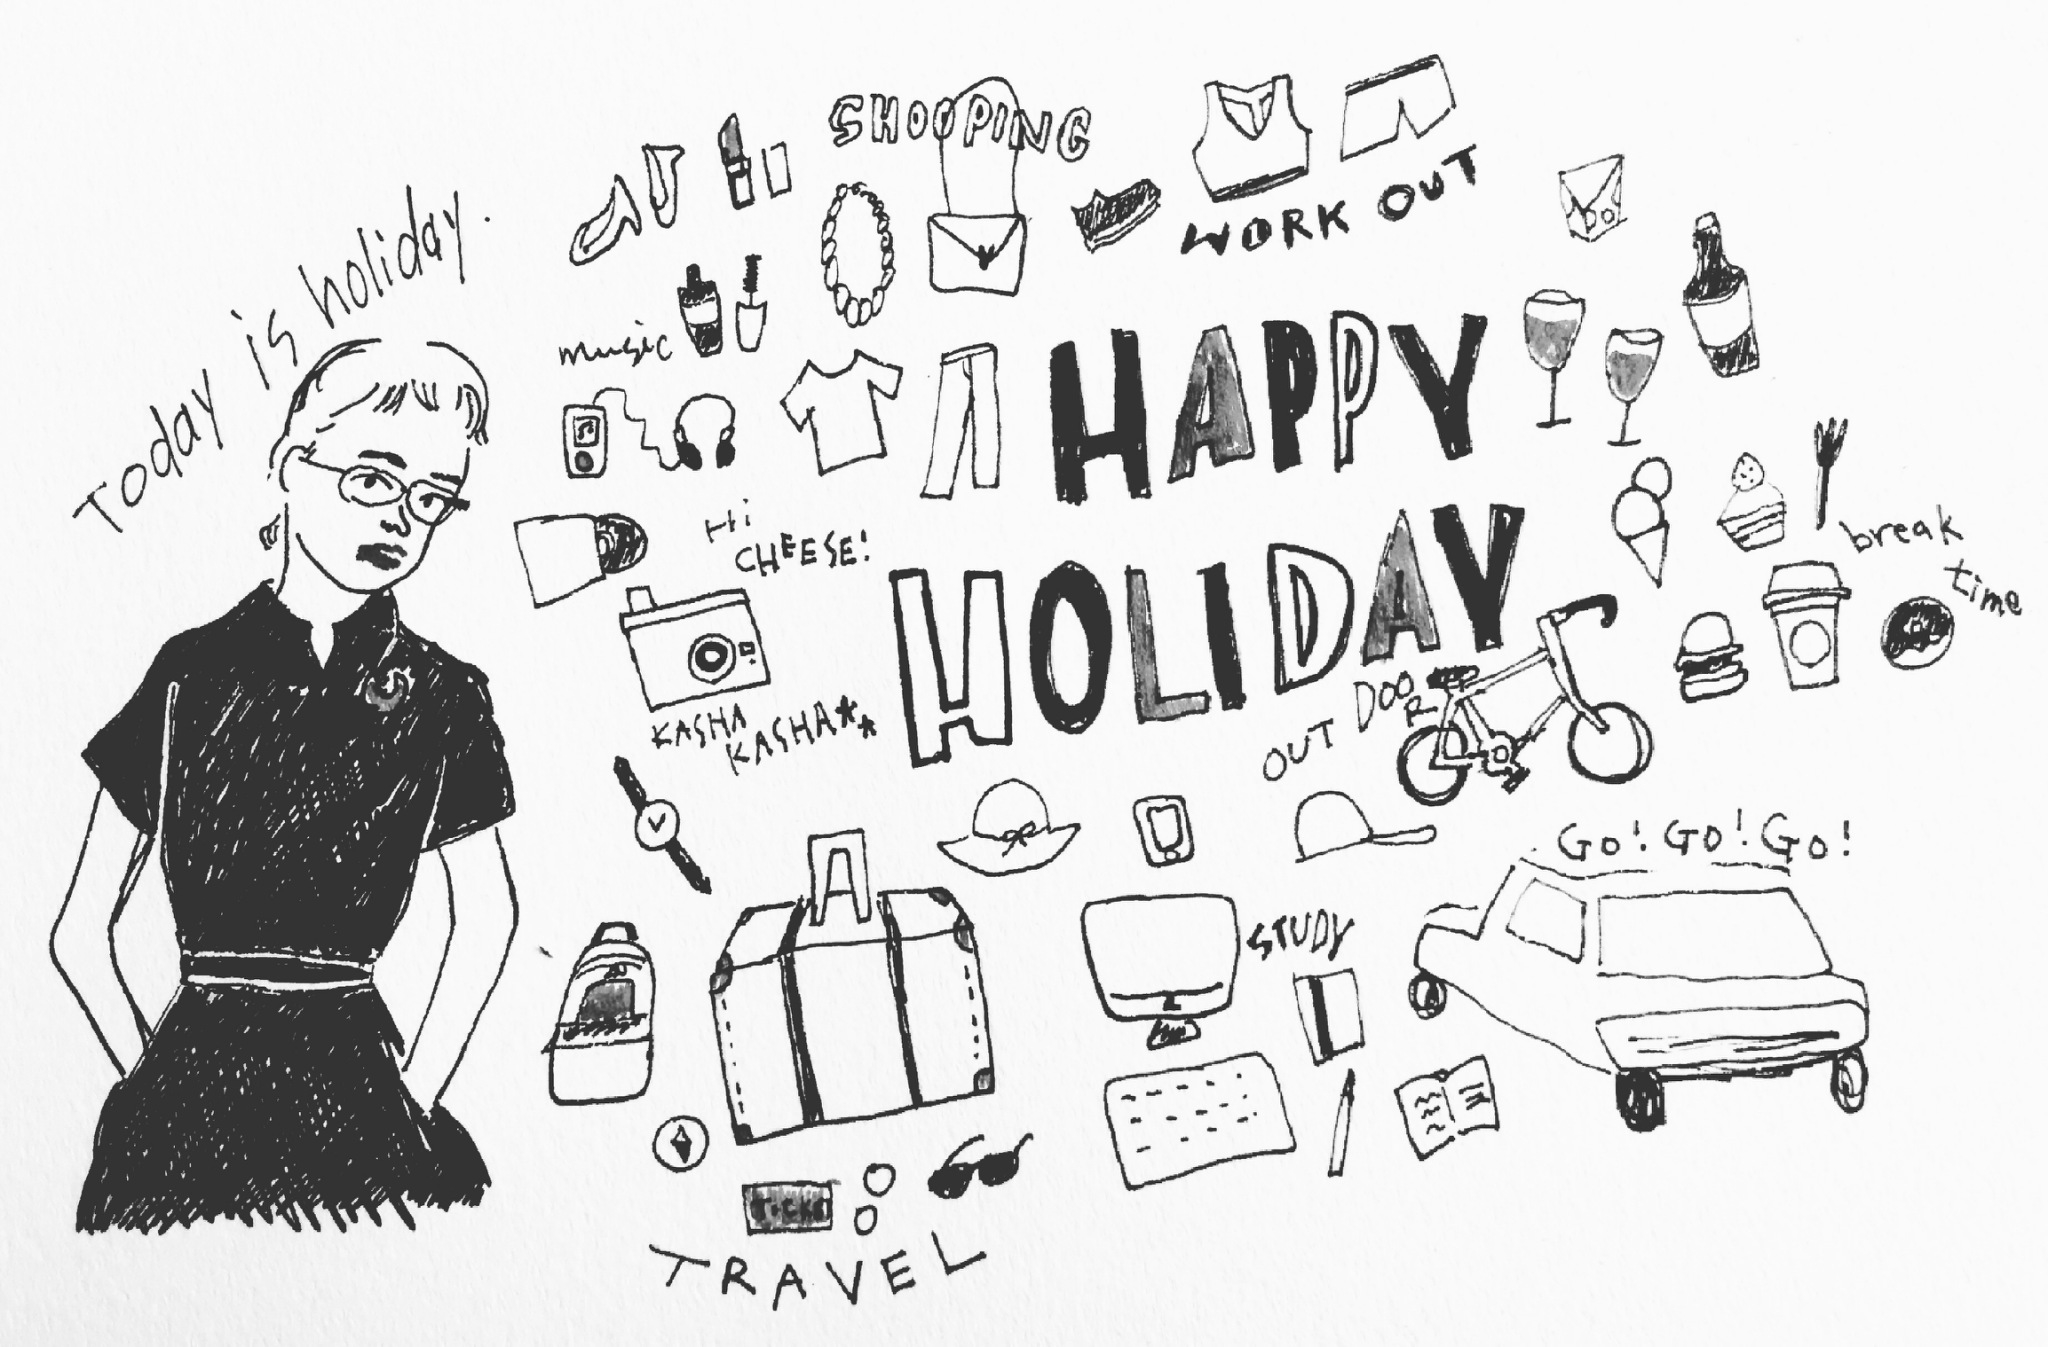 Today is holiday.
SHOPPING
WORK OUT
music
HAPPY
HOLIDAY
Hi
CHEESE!
KASHA
KASHA**
break
time
OUT DOOR
GO! GO! GO!
STUDY
TICKET
TRAVEL